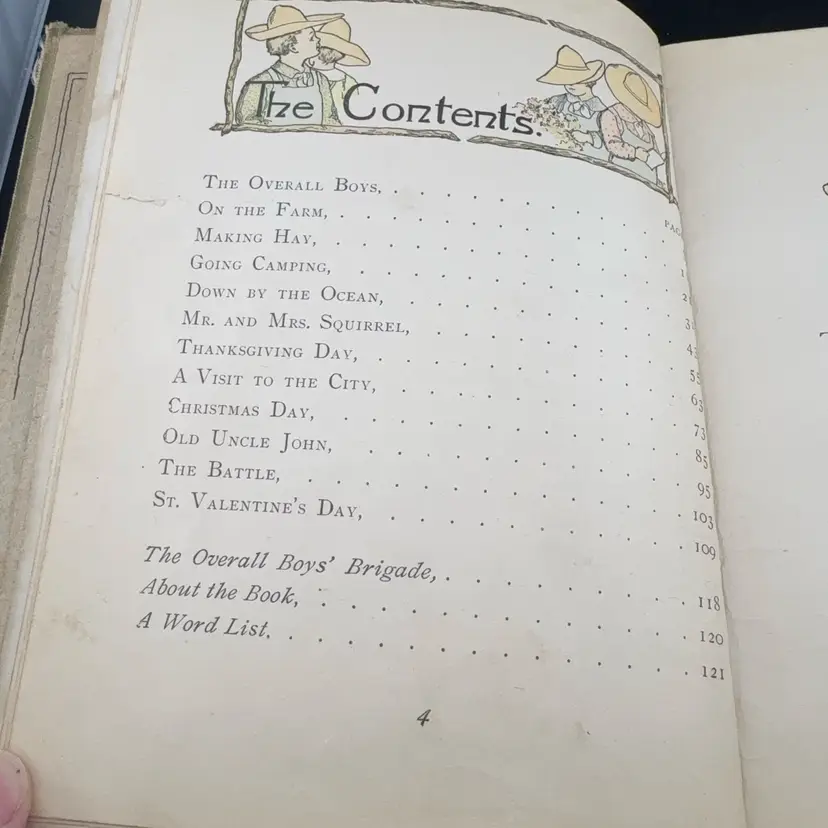 The Contents.
PAG
THE OVERALL BOYS, . . . . . . . . . . .
ON THE FARM, . . . . . . . . . . . . .
MAKING HAY, . . . . . . . . . . . . .
GOING CAMPING, . . . . . . . . . . . .
DOWN BY THE OCEAN, . . . . . . . . . .
MR. AND MRS. SQUIRREL, . . . . . . . . . 55
THANKSGIVING DAY, . . . . . . . . . . . 63
A VISIT TO THE CITY, . . . . . . . . . . 73
CHRISTMAS DAY, . . . . . . . . . . . . 85
OLD UNCLE JOHN, . . . . . . . . . . . . 95
THE BATTLE, . . . . . . . . . . . . . 103
ST. VALENTINE'S DAY, . . . . . . . . . . 109
The Overall Boys' Brigade, . . . . . . . . . 118
About the Book, . . . . . . . . . . . . 120
A Word List, . . . . . . . . . . . . . 121
4